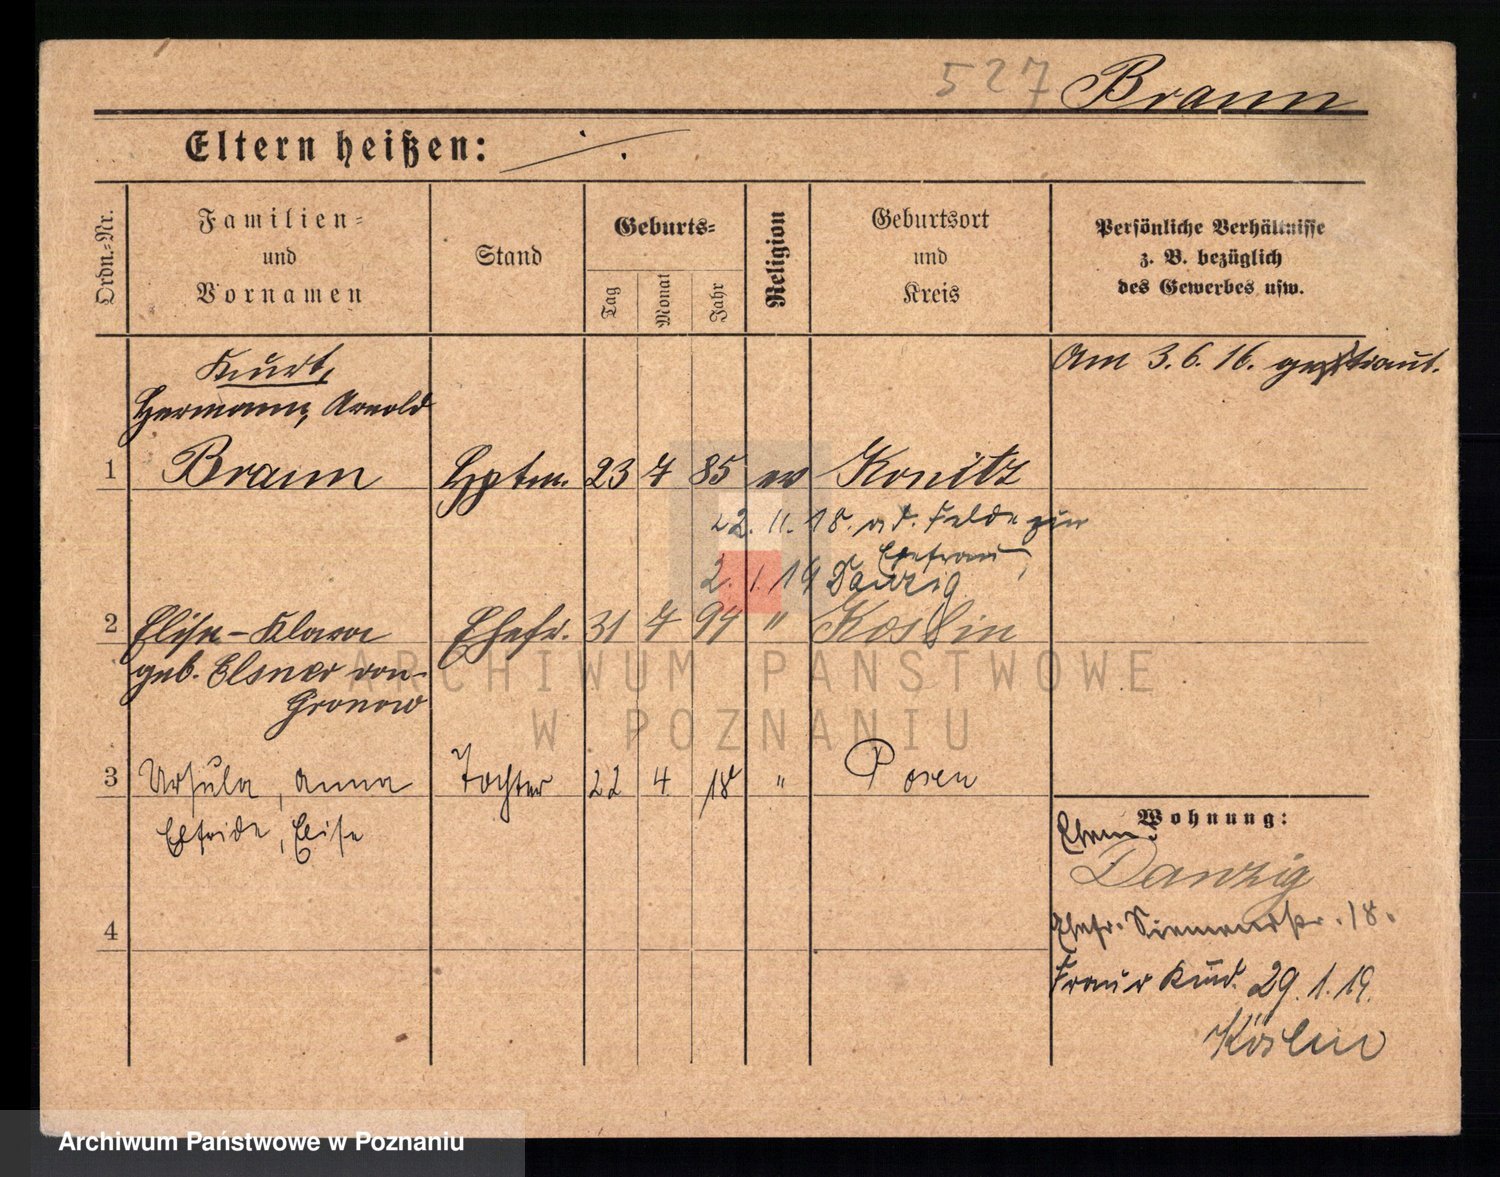 527 Braun
Eltern heißen: ∕.
Ordn.=Nr.
Familien=
und
Vornamen
Stand
Geburts=
Tag
Monat
Jahr
Religion
Geburtsort
und
Kreis
Persönliche Verhältnisse
z. B. bezüglich
des Gewerbes usw.
Am 3.6.16. getraut.
Kurt,
Hermann, Arnold
1 Braun Hptm. 23 7 85 ev Konitz
22.11.18. a d. Felde zur
Ehefrau,
2.1.19 Danzig
2 Elise-Klara Ehefr. 31 7 94 " Köslin
geb. Elsner von
Gronow
3 Ursula, Anna Tochter 22 4. 18 " Posen
Elfride, Elise
Wohnung:
Ehem:
Danzig
4
Ehefr. 18.
Frau u Kind. 29.1.19.
Köslin
ARCHIWUM PAŃSTWOWE
W POZNANIU
Archiwum Państwowe w Poznaniu